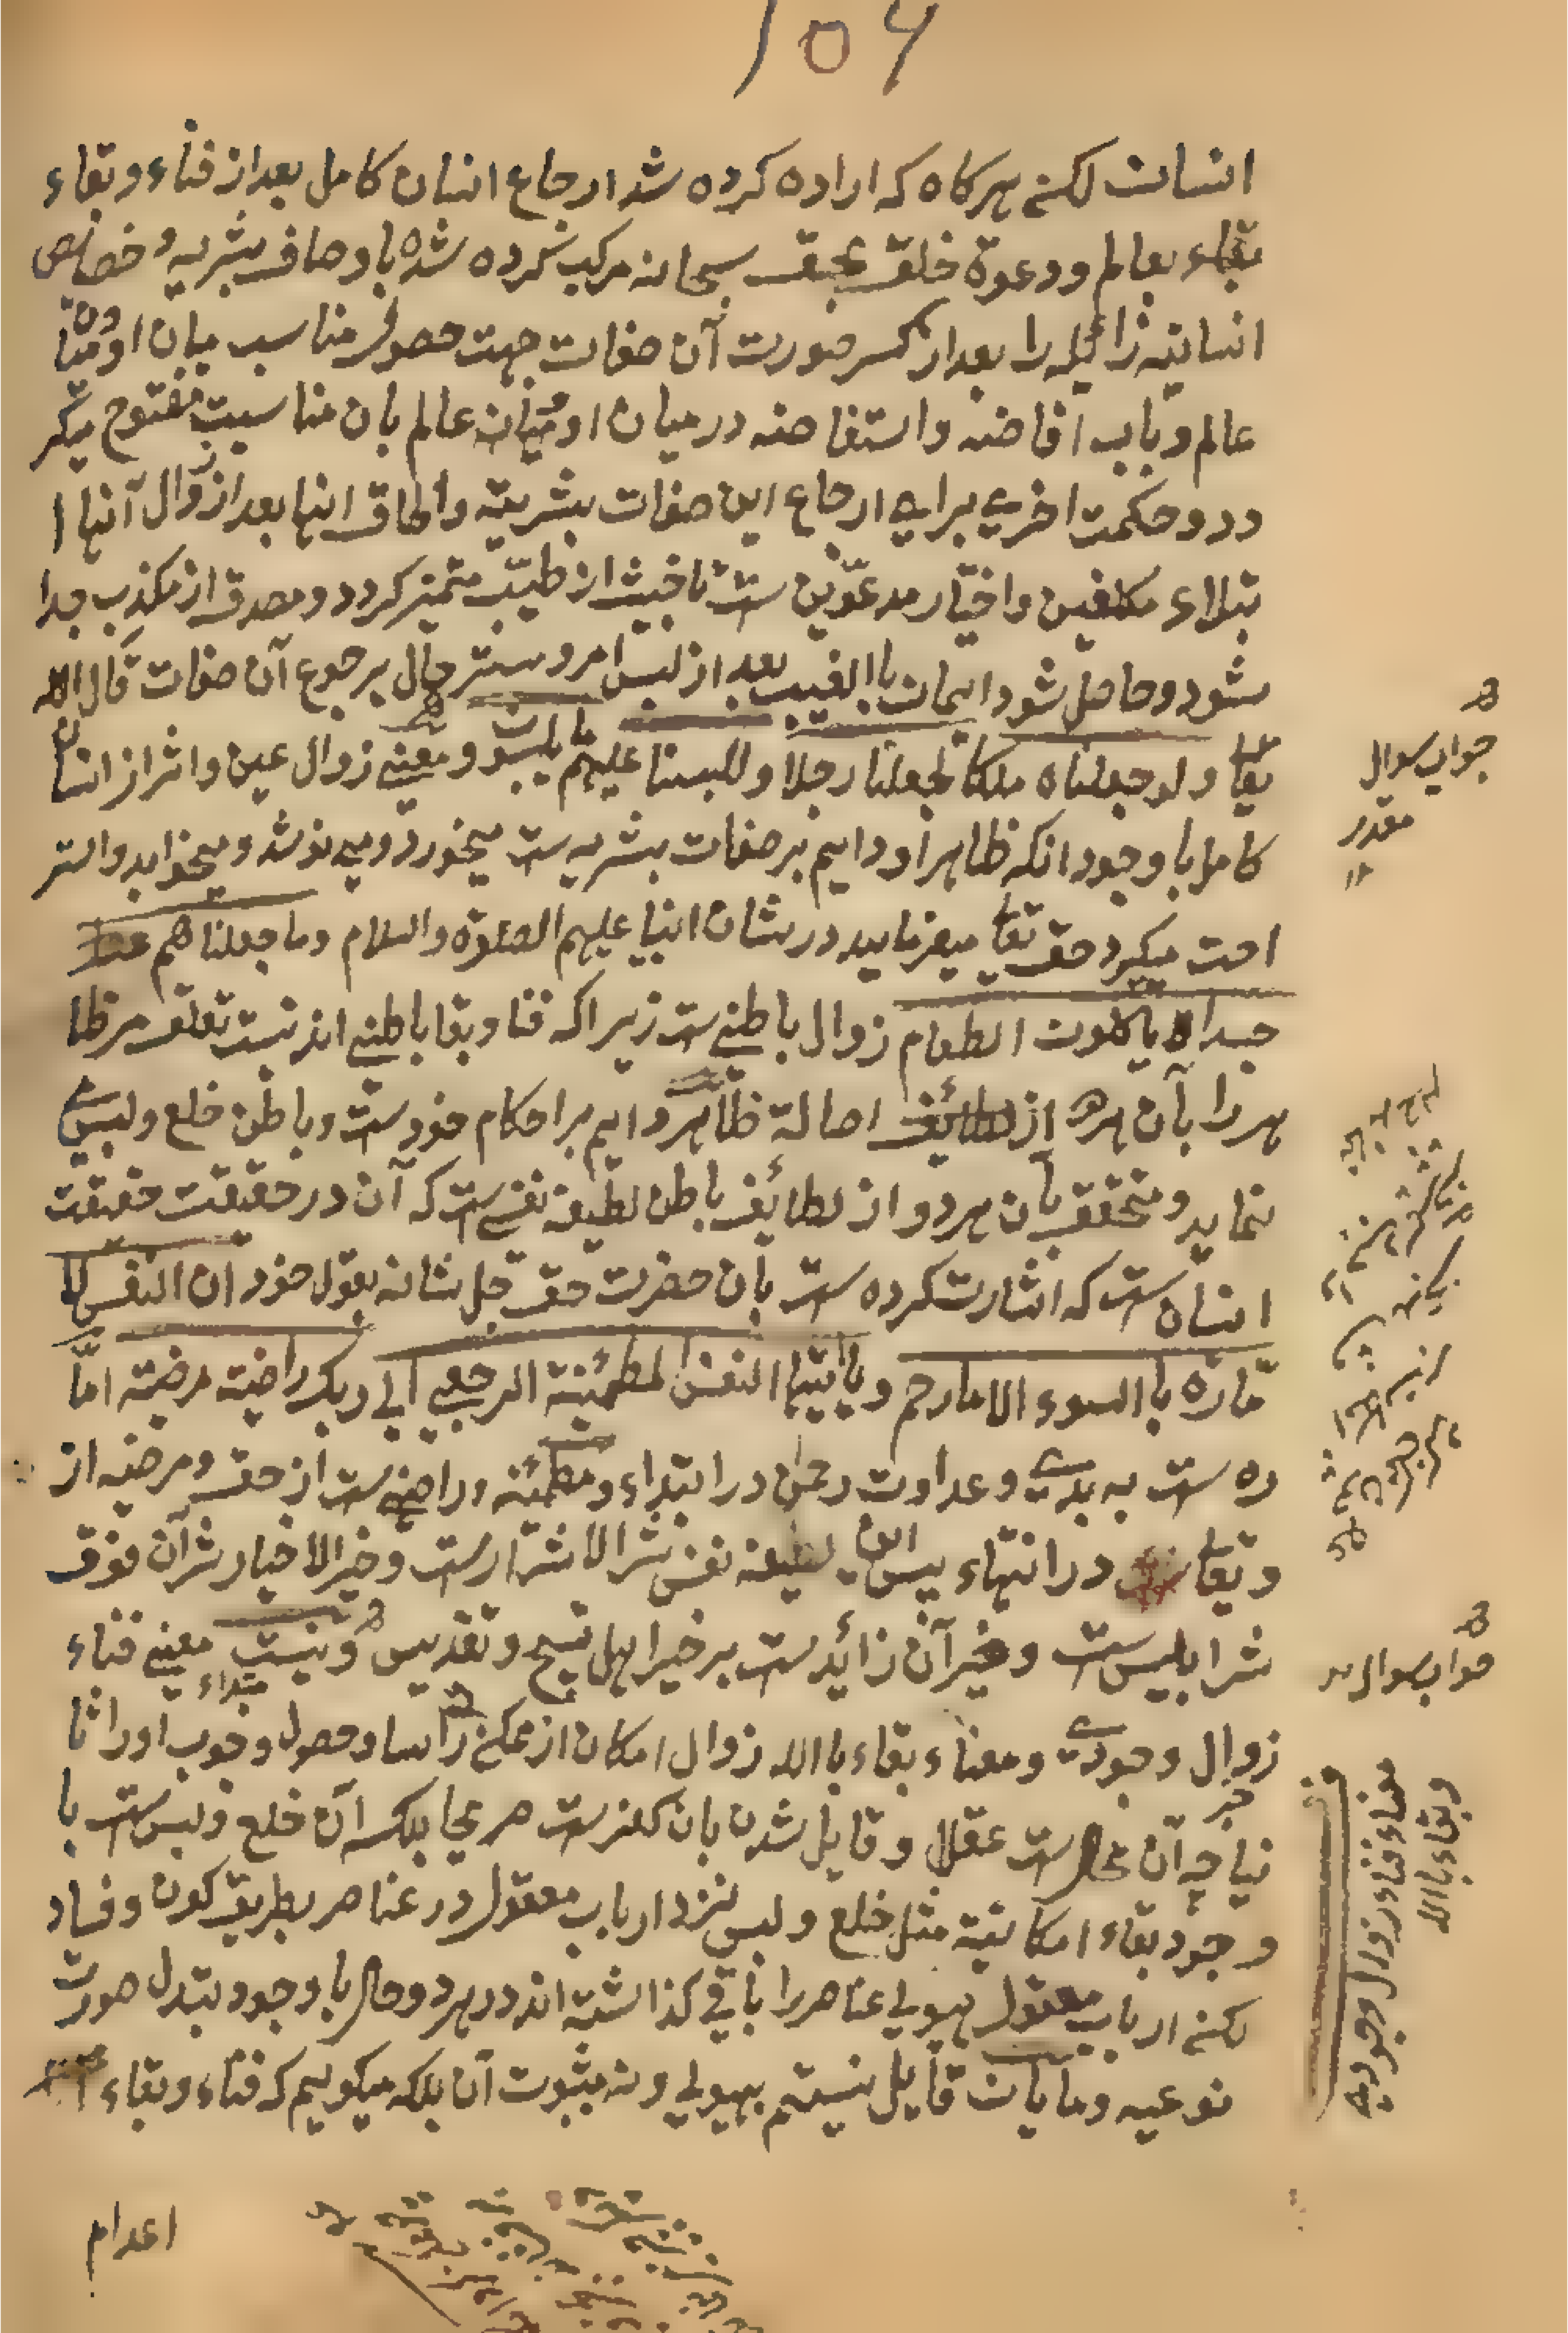 ۱۵۶
انسانت لکنه هرکاه که اراده کرده شد ارجاع انسان کامل بعد از فناء و بقاء
بقاء بعالم و دعوة خلق بحق سبحانه مرکب کرده شده باوصاف بشریه و خصایص
انسانیه زائیله را بعد از کسر صورت آن صفات جهت حصول مناسب میان او و میان
عالم و باب افاضه و استفاضه در میان او و میان عالم بان مناسبت مفتوح میکر
دد و حکمت اخری برای ارجاع این صفات بشریه و الحاق اینها بعد از زوال آنها ا
بتلاء مکلفین و اختیار مدعوّین ست تا خبیث از طیّب متمیز کردد و مصدق از مکذب جدا
شود و حاصل شود ایمان باالغیب بعد از لبس امر و ستر حال برجوع آن صفات قال الله
تعا ولو جعلناه ملکا لجعلنا رجلا وللبسنا علیهم ما یلبسون و معنی زوال عین و اثر از انسان
کامل با وجود انکه ظاهر او دایم بر صفات بشریه ست میخورد و می نوشد و میخوابد و استر
احت میکیرد حق تعا میفرماید در شان انبیا علیهم الصلوة والسلام وما جعلناهم
جسدا لا یاکلون الطعام زوال باطنی ست زیرا که فنا و بقا باطنی اند نیست تعلق مر ظا
هر را بآن هر دو از لطائف اصالة ظاهر دایم بر احکام خود ست و باطن خلع و لبس می
نماید و متحقق بآن هر دو از لطائف باطن لطیفه نفس ست که آن در حقیقت حقیقت
انسان ست که اشارت کرده ست بآن حضرت حق جل شانه بقول خود ان النفس لا
مّارة باالسوء الا ما رحم و یا ایتها النفس المطمئنة الرجعی الی ربک راضیة مرضیة امّا
ره ست به بدی و عداوت رحمن در ابتداء و مطمئنه و راضیه ست از حق و مرضیه از
و تعا در انتهاء پس این لطیفه نفس شر الاشرار ست و خیر الاخیار شر آن فوق
شر ابلیس ست و خیر آن زائد ست بر خیر اهل تسبیح و تقدیس و نیست معنی فناء
زوال وجودی و معناء بقاء باالله زوال امکان از ممکن راسا و حصول وجوب او را ثا
نیا چه آن محال ست عقلا و قایل شدن بان کفر ست صریحا بلکه آن خلع و لبس ست با
وجود بقاء امکانیّه مثل خلع و لبس نزد ارباب معقول در عناصر بطریق کون و فساد
لکنه ارباب معقول هیولی عناصر را باقی کذاشته اند در هر دو حال با وجود تبدل صورت
نوعیه و ما بان قایل نیستم بهیولی و نه بثبوت آن بلکه میکویم که فناء و بقاء
اعدام
جواب سوال
مقدر
۱۲
جواب سوال
معناء فناء زوال وجودیه
و بقاء باالله